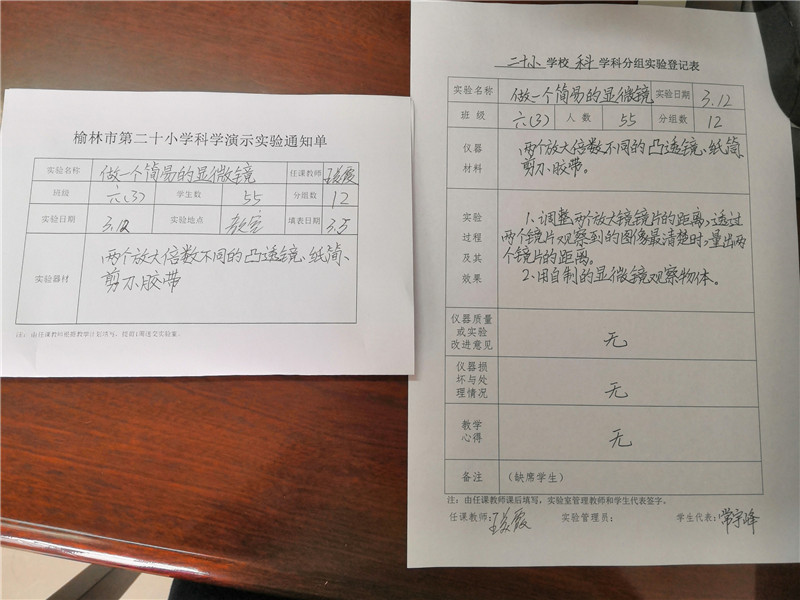 榆林市第二十小学科学演示实验通知单
实验名称 做一个简易的显微镜 任课教师
班级 六(3) 学生数 55 分组数 12
实验日期 3.12 实验地点 教室 填表日期 3.5
实验器材 两个放大倍数不同的凸透镜、纸筒、
剪刀、胶带
注:由任课教师根据教学计划填写,
二十小 学校 科 学科分组实验登记表
实验名称 做一个简易的显微镜 实验日期 3.12
班 级 六(3) 人 数 55 分组数 12
仪器
材料
两个放大倍数不同的凸透镜、纸筒、
剪刀、胶带。
实验
过程
及其
效果
1、调整两个放大镜镜片的距离,透过
两个镜片观察到的图像最清楚时,量出两
个镜片的距离。
2、用自制的显微镜观察物体。
仪器质量
或实验
改进意见
无
仪器损
坏与处
理情况
无
教学
心得
无
备注 (缺席学生)
注:由任课教师课后填写,实验室管理教师和学生代表签字。
任课教师: 实验管理员: 学生代表:常宇峰